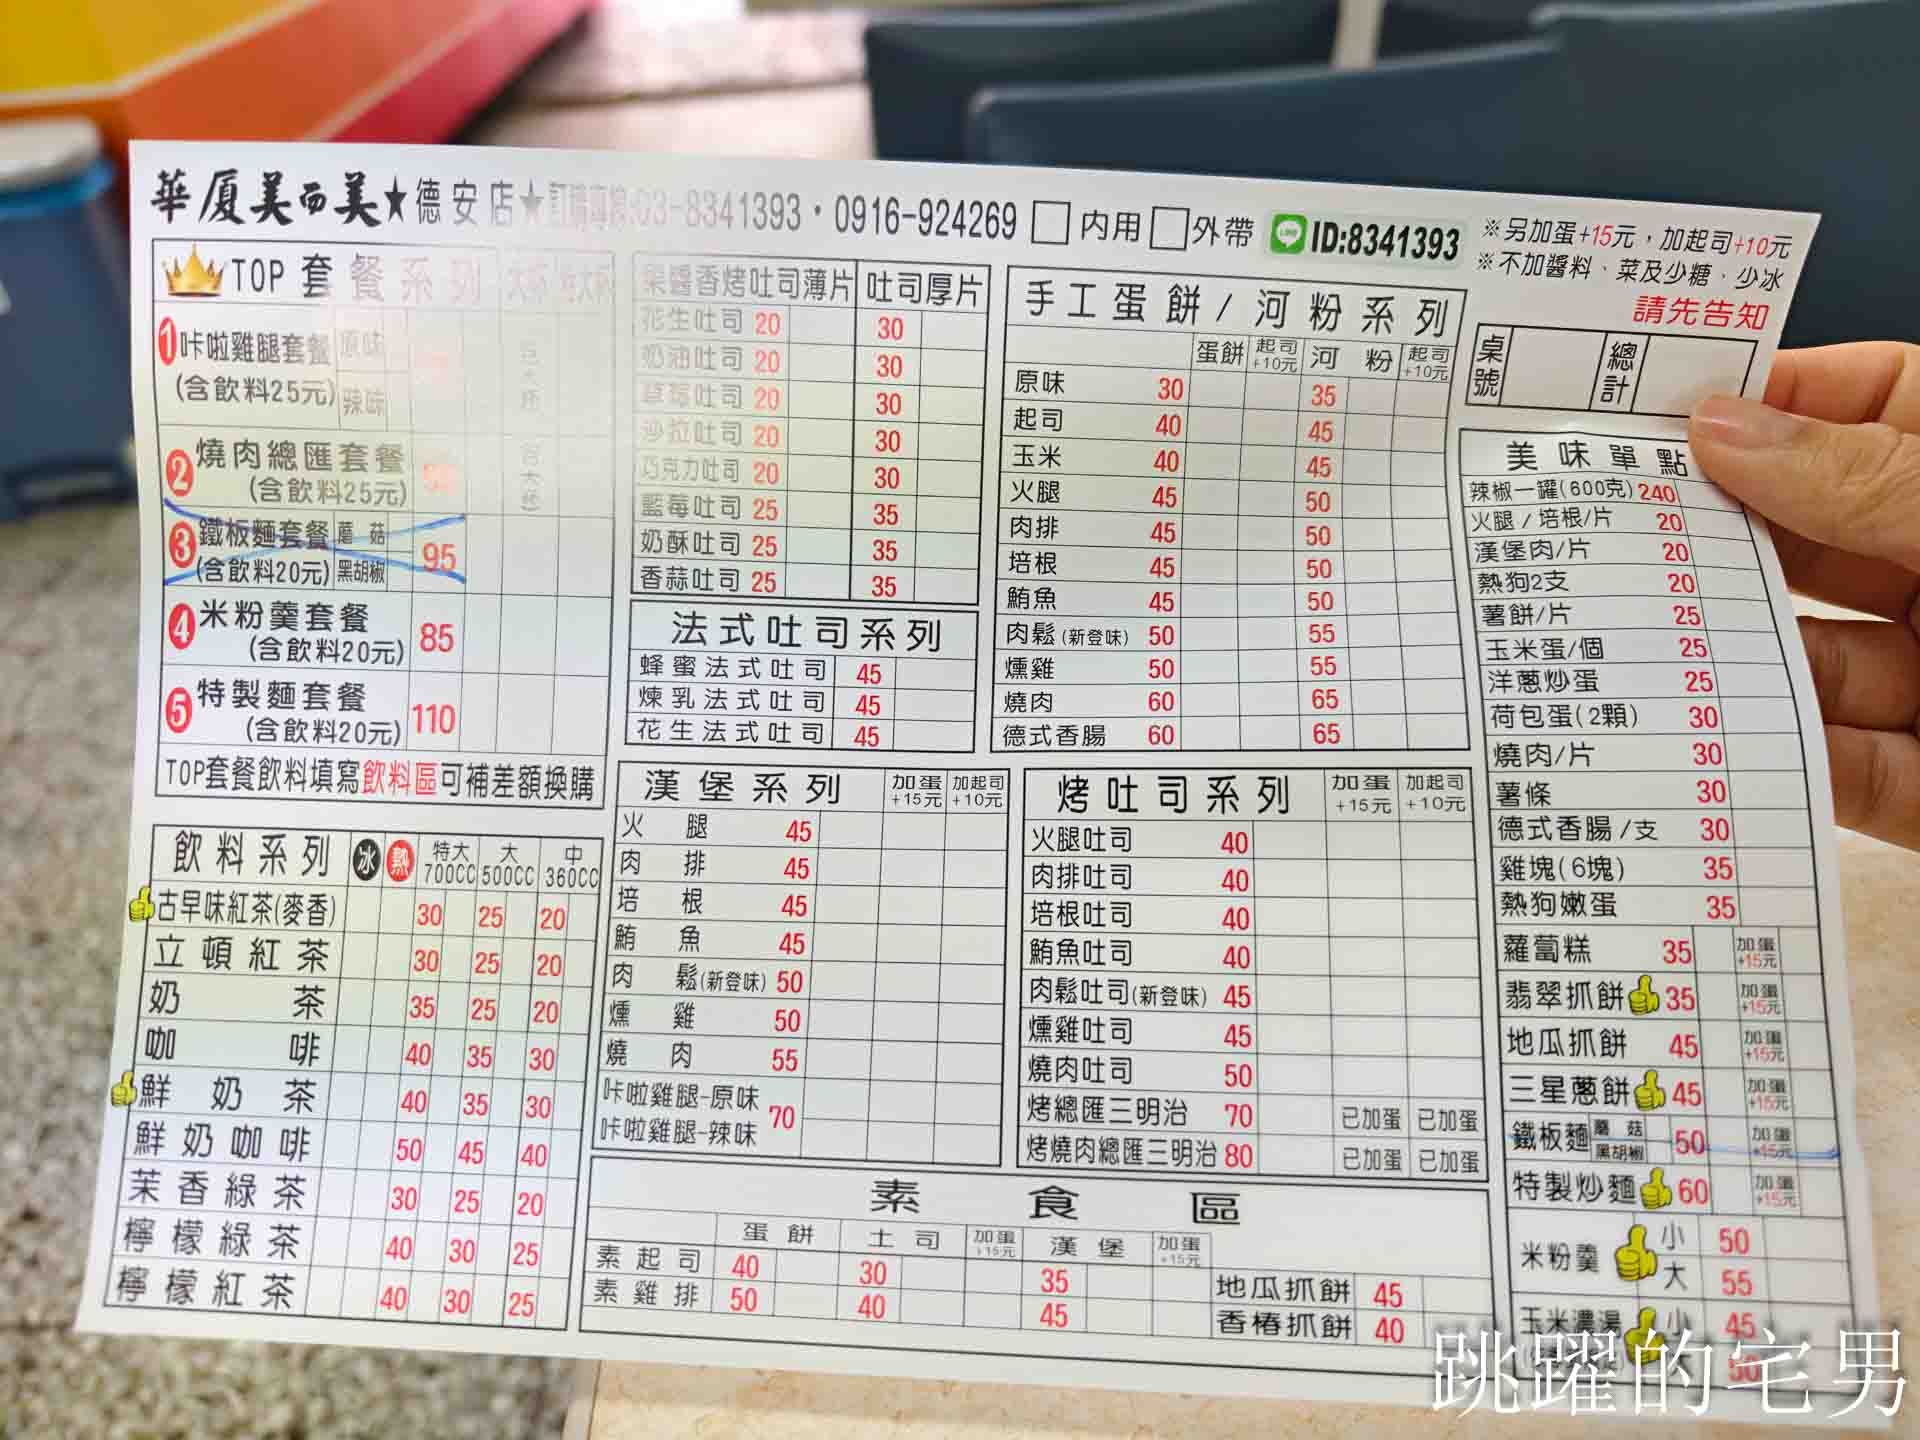 華厦美而美★德安店★訂購專線:03-8341393・0916-924269 □內用□外帶 LINE ID:8341393
※另加蛋+15元，加起司+10元
※不加醬料、菜及少糖、少冰
請先告知
桌號 總計
TOP 套餐系列 大杯 特大杯
1 咔啦雞腿套餐 原味
(含飲料25元) 辣味
2 燒肉總匯套餐
(含飲料25元)
3 鐵板麵套餐 蘑菇 95
(含飲料20元) 黑胡椒
4 米粉羹套餐 85
(含飲料20元)
5 特製麵套餐 110
(含飲料20元)
TOP套餐飲料填寫飲料區可補差額換購
飲料系列 冰 熱 特大700CC 大500CC 中360CC
古早味紅茶(麥香) 30 25 20
立頓紅茶 30 25 20
奶茶 35 25 20
咖啡 40 35 30
鮮奶茶 40 35 30
鮮奶咖啡 50 45 40
茉香綠茶 30 25 20
檸檬綠茶 40 30 25
檸檬紅茶 40 30 25
果醬香烤吐司薄片 吐司厚片
花生吐司 20 30
奶油吐司 20 30
草莓吐司 20 30
沙拉吐司 20 30
巧克力吐司 20 30
藍莓吐司 25 35
奶酥吐司 25 35
香蒜吐司 25 35
法式吐司系列
蜂蜜法式吐司 45
煉乳法式吐司 45
花生法式吐司 45
手工蛋餅/河粉系列
蛋餅 起司+10元 河粉 起司+10元
原味 30 35
起司 40 45
玉米 40 45
火腿 45 50
肉排 45 50
培根 45 50
鮪魚 45 50
肉鬆(新登味) 50 55
燻雞 50 55
燒肉 60 65
德式香腸 60 65
漢堡系列 加蛋+15元 加起司+10元
火腿 45
肉排 45
培根 45
鮪魚 45
肉鬆(新登味) 50
燻雞 50
燒肉 55
咔啦雞腿-原味
咔啦雞腿-辣味 70
烤吐司系列 加蛋+15元 加起司+10元
火腿吐司 40
肉排吐司 40
培根吐司 40
鮪魚吐司 40
肉鬆吐司(新登味) 45
燻雞吐司 45
燒肉吐司 50
烤總匯三明治 70 已加蛋 已加蛋
烤燒肉總匯三明治 80 已加蛋 已加蛋
素食區
蛋餅 土司 加蛋+15元 漢堡 加蛋+15元
素起司 40 30 35
素雞排 50 40 45
地瓜抓餅 45
香椿抓餅 40
美味單點
辣椒一罐(600克) 240
火腿/培根/片 20
漢堡肉/片 20
熱狗2支 20
薯餅/片 25
玉米蛋/個 25
洋蔥炒蛋 25
荷包蛋(2顆) 30
燒肉/片 30
薯條 30
德式香腸/支 30
雞塊(6塊) 35
熱狗嫩蛋 35
蘿蔔糕 35 加蛋+15元
翡翠抓餅 35 加蛋+15元
地瓜抓餅 45 加蛋+15元
三星蔥餅 45 加蛋+15元
鐵板麵 蘑菇 黑胡椒 50 加蛋+15元
特製炒麵 60 加蛋+15元
米粉羹 小 50
大 55
玉米濃湯 小 45
大 50
跳躍的宅男